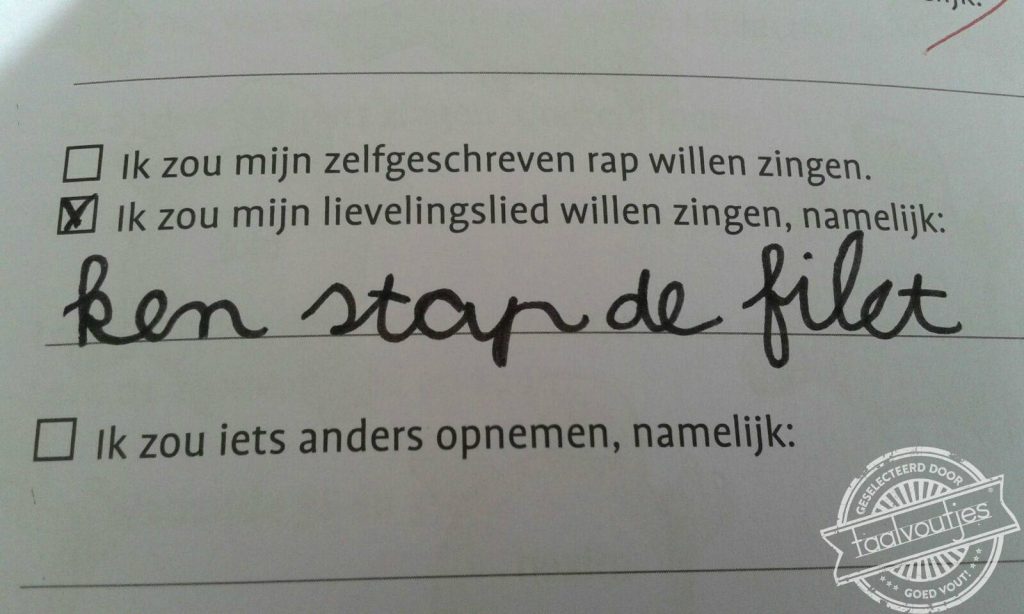 Ik zou mijn zelfgeschreven rap willen zingen.
Ik zou mijn lievelingslied willen zingen, namelijk:
ken stap de filet
Ik zou iets anders opnemen, namelijk:
GESELECTEERD DOOR
taalvoutjes
GOED VOUT!